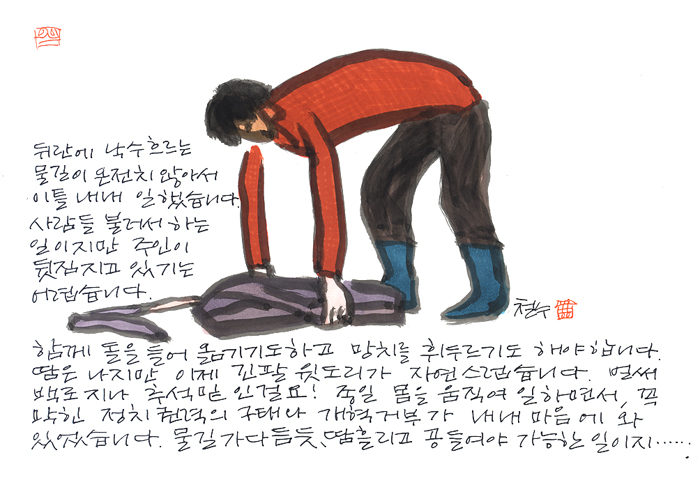 뒤란에 낙수흐르는
물길이 온전치 않아서
이틀 내내 일했습니다.
사람들 불러서 하는
일이지만 주인이
뒷짐지고 있기는
어렵습니다.
철수
함께 돌을 들어 옮기기도하고 망치를 휘두르기도 해야합니다.
땀은 나지만 이제 긴팔 윗도리가 자연스럽습니다. 벌써
백로지나 추석밑인걸요! 종일 몸을 움직여 일하면서, 꽉
막힌 정치권력의 구태와 개혁거부가 내내 마음에 와
있었습니다. 물길 가다듬듯, 땀흘리고 공들여야 가능한 일이지......